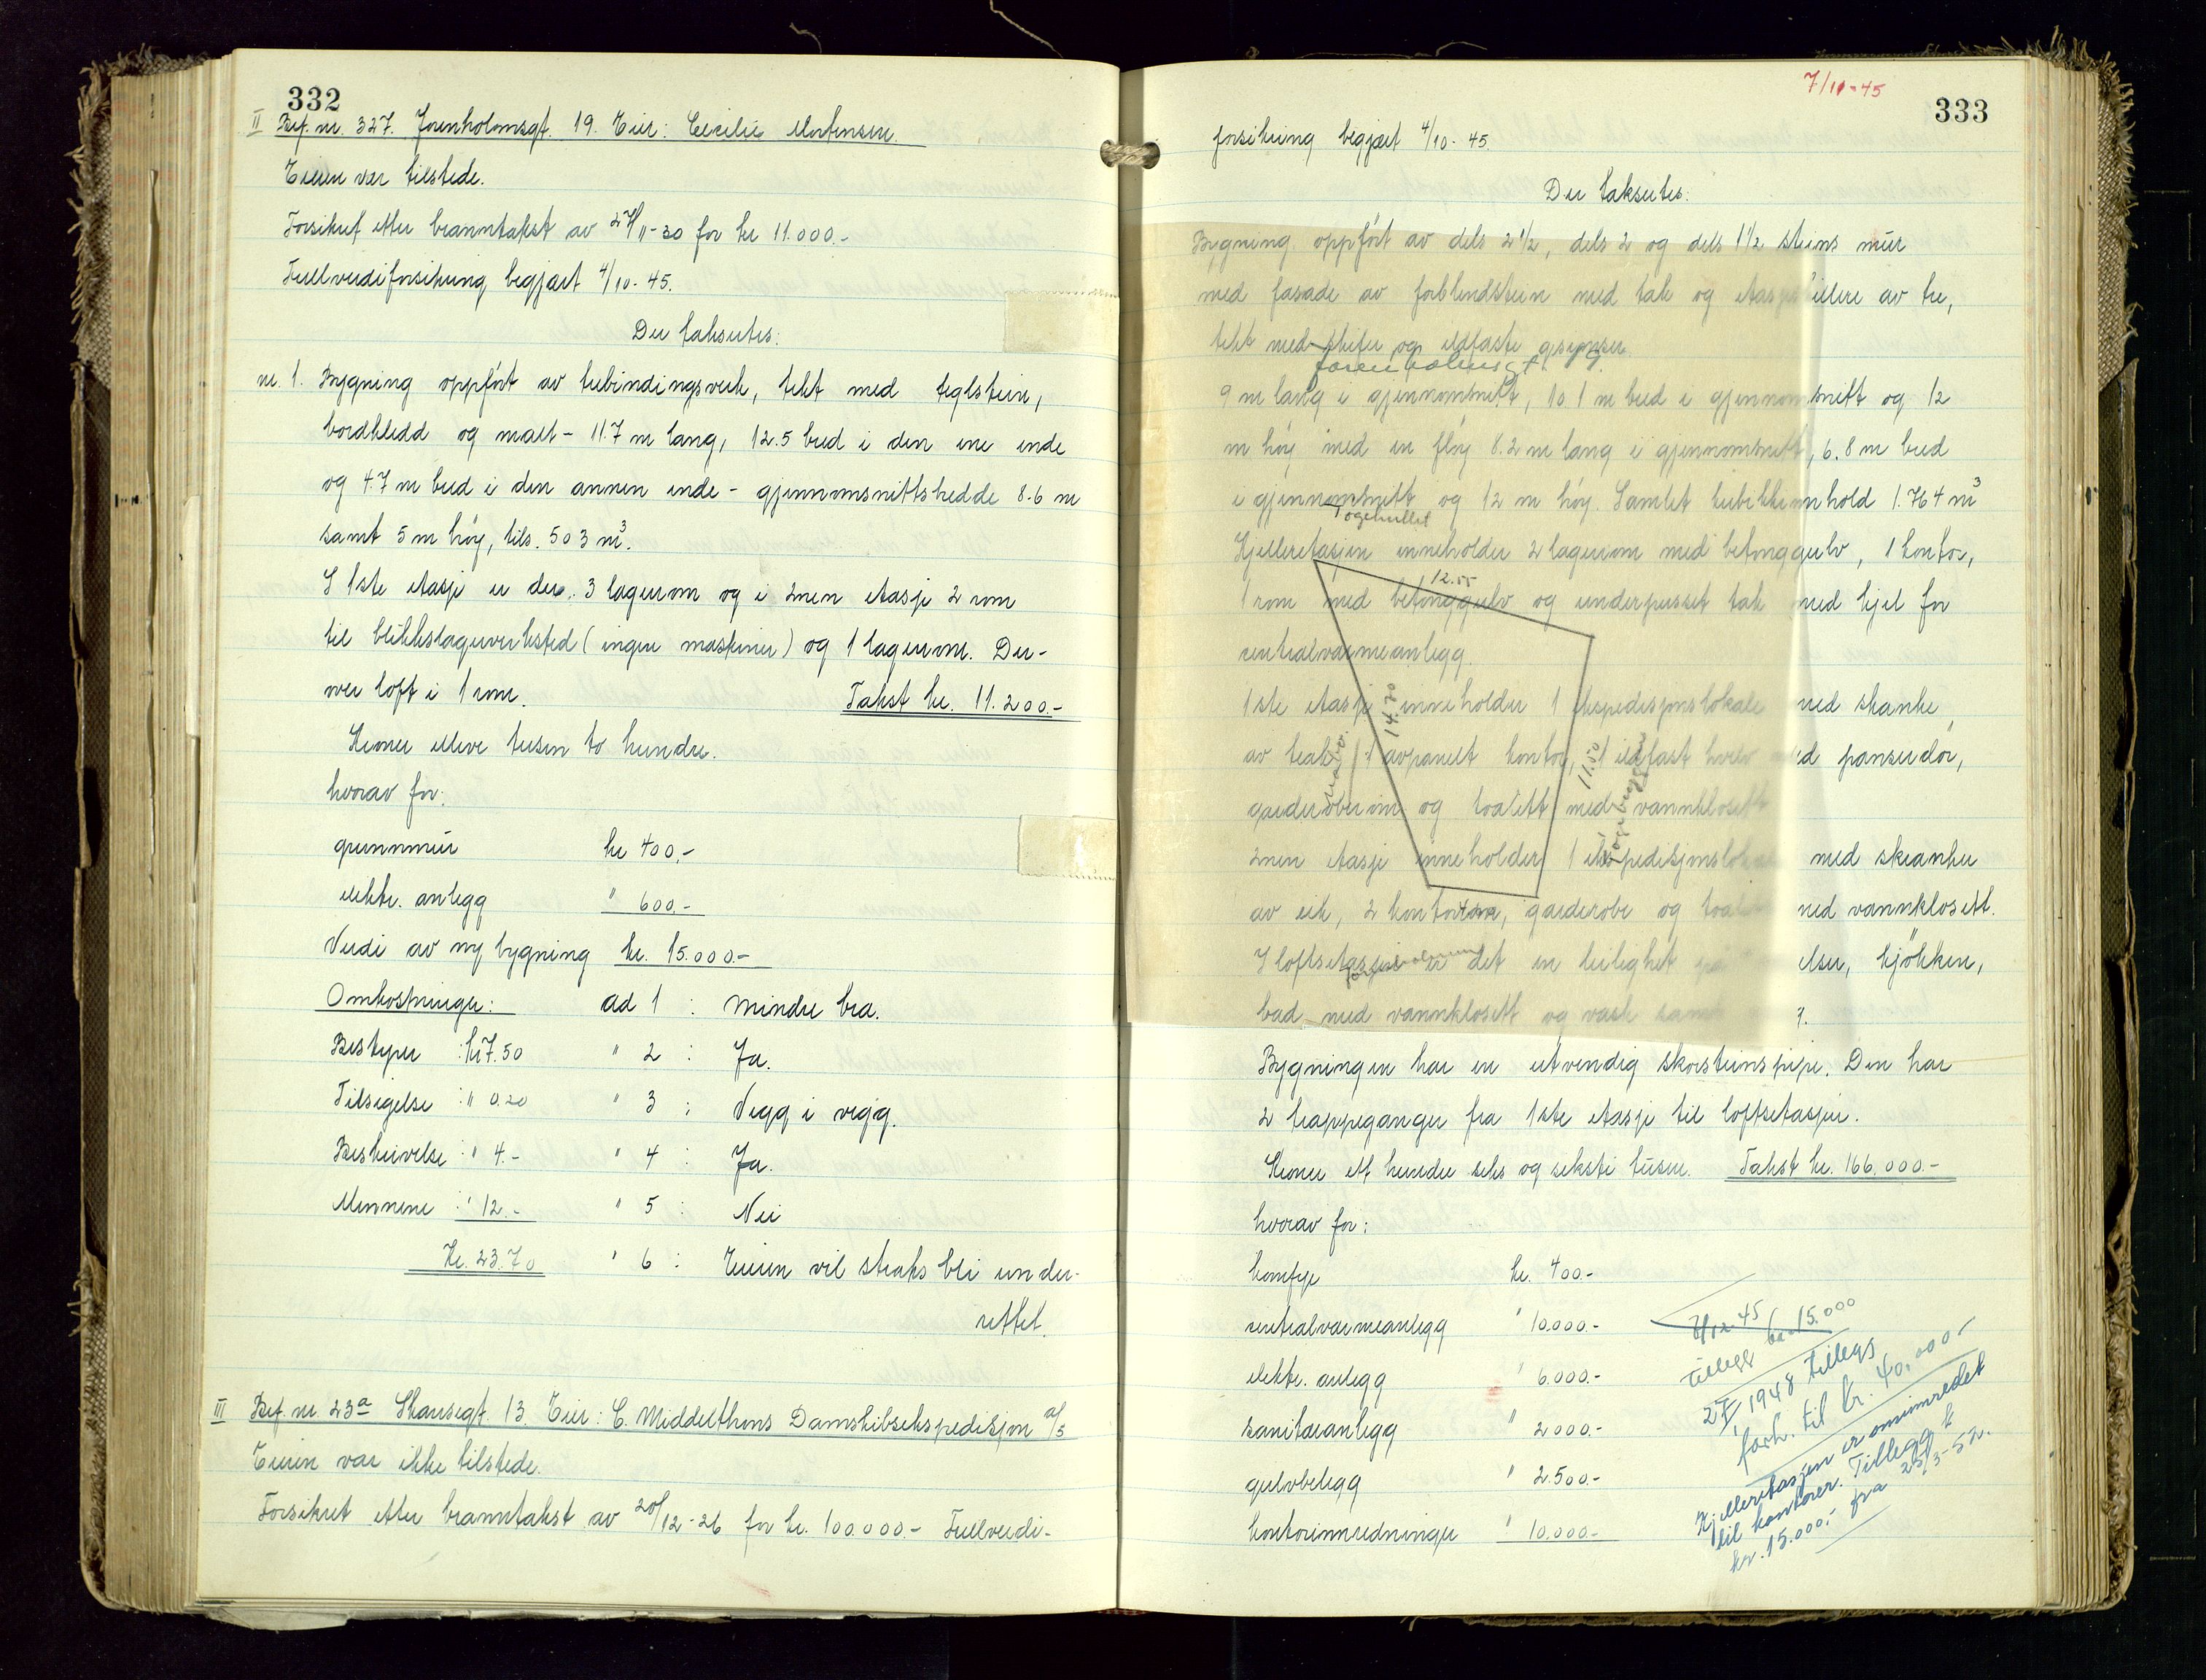 332
II Bef. nr. 327. Jorenholmsgt. 19. Eier: Cecilie Mortensen.
Eieren var tilstede.
Forsikret etter branntakst av 27/11-30 for kr 11.000.-
Fullverdiforsikring begjært 4/10-45.
Der takseertes:
nr. 1. Bygning oppført av trebindingsverk, tekt med teglstein,
bordkledd og malt - 11.7 m lang, 12.5 bred i den ene ende
og 4.7 m bred i den annen ende - gjennomsnittsbredde 8.6 m
samt 5 m høy, tils. 503 m³.
I 1ste etasje er der 3 lagerrom og i 2nen etasje 2 rom
til blikkslagerverksted (ingen maskiner) og 1 lagerrom. Der-
over loft i 1 rom. Takst kr. 11.200.-
Kroner elleve tusen to hundre.
hvorav for:
grunnmur kr 400,-
elektr. anlegg " 600,-
Verdi av ny bygning kr. 15.000.-
Omkostninger: ad 1 : Mindre bra.
Bestyrer : kr 7.50 " 2 : Ja.
Tilsigelse : " 0.20 " 3 : Vegg i vegg.
Beskrivelse : " 4.- " 4 : Ja.
Mennene : " 12.- " 5 : Nei
Kr. 23.70 " 6 : Eieren vil straks bli under-
rettet.
III Bef. nr. 23a Skansegt. 13. Eier: C. Middelthons Damskibsekspedisjon a/s
Eieren var ikke tilstede.
Forsikret etter branntakst av 20/12-26 for kr. 100.000.- Fullverdi-
7/11-45
333
forsikring begjært 4/10-45.
Der takseertes:
Bygning oppført av dels 2 1/2, dels 2 og dels 1 1/2 steins mur
med fasade av forblendstein med tak og etasjeskillere av tre,
tekt med skifer og ildfaste gesimser.
Jorenholmsgt. 19.
9 m lang i gjennomsnitt, 10.1 m bred i gjennomsnitt og 12
m høy med en fløy 8.2 m lang i gjennomsnitt, 6.8 m bred
i gjennomsnitt og 12 m høy. Samlet kubikkinnhold 1.764 m³
Kjelleretasjen inneholder 2 lagerrom med betonggulv, 1 kontor,
1 rom med betonggulv og underpusset tak med kjel for
12.55
sentralvarmeanlegg.
1ste etasje inneholder 1 ekspedisjonslokale med skranke
14.70
av teak, 1 avpanelt kontor, 1 ildfast hvelv med panserdør,
11.50
garderoberom og toalett med vannklosett
2nen etasje inneholder 1 ekspedisjonslokale med skranke
av eik, 2 kontorer, garderobe og toalett med vannklosett.
I loftsetasjen er det en leilighet på elser, kjøkken,
bad med vannklosett og vask samt
Bygningen har en utvendig skorsteinspipe. Den har
2 trappeganger fra 1ste etasje til loftsetasjen.
Kroner ett hundre seks og seksti tusen. Takst kr. 166.000.-
hvorav for:
komfyr kr. 400.-
sentralvarmeanlegg " 10.000.-
elektr. anlegg " 6.000.-
sanitæranlegg " 2.000.-
gulvbelegg " 2.500.-
kontorinnredninger " 10.000.-
8/12-45
Tillegg kr. 15.000
2/I 1948 tillegg
forh. til kr. 40.000.-
Kjelleretasjen er ominnredet
til kontorer. Tillegg
kr. 15.000,- fra 25/3-52.